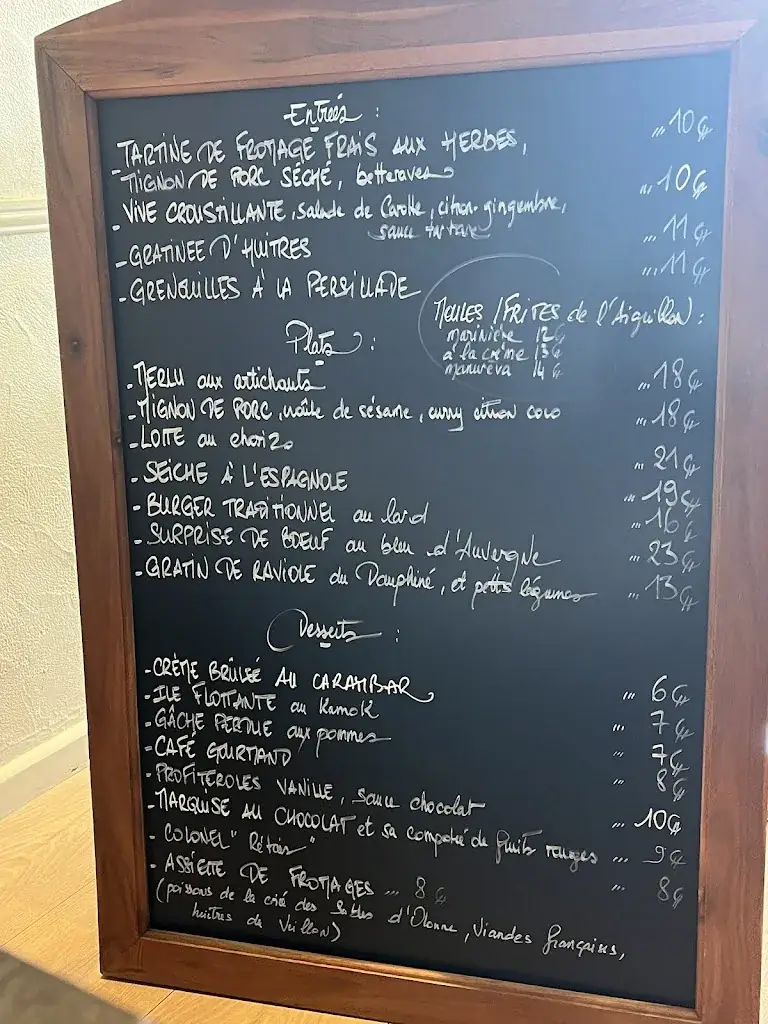 Entrées :
- TARTINE DE FROMAGE FRAIS AUX HERBES, ... 10€
MIGNON DE PORC SÉCHÉ, betteraves
- VIVE CROUSTILLANTE, salade de Carotte, citron-gingembre, ... 10€
sauce tartare
- GRATINEE D'HUITRES ... 11€
- GRENOUILLES À LA PERSILLADE ... 11€
MOULES / FRITES de l'Aiguillon :
marinière 12€
à la crème 13€
manureva 14€
Plats :
- MERLU aux artichauts ... 18€
- MIGNON DE PORC, huile de sésame, curry citron coco ... 18€
- LOTTE au chorizo ... 21€
- SEICHE À L'ESPAGNOLE ... 19€
- BURGER TRADITIONNEL au lard ... 16€
- SURPRISE DE BOEUF au bleu d'Auvergne ... 23€
- GRATIN DE RAVIOLE du Dauphiné, et petits légumes ... 13€
Desserts :
- CRÈME BRÛLÉÉ AU CARAMBAR ... 6€
- ILE FLOTTANTE au Kamok ... 7€
- GÂCHE PERDUE aux pommes ... 7€
- CAFÉ GOURMAND ... 8€
- PROFITEROLES VANILLE, sauce chocolat ... 10€
- MARQUISE AU CHOCOLAT et sa compotée de fruits rouges ... 9€
- COLONEL " " ... 8€
- ASSIETTE DE FROMAGES ... 8€
(poissons de la criée des Sables d'Olonne, Viandes françaises,
huitres du Veillon)